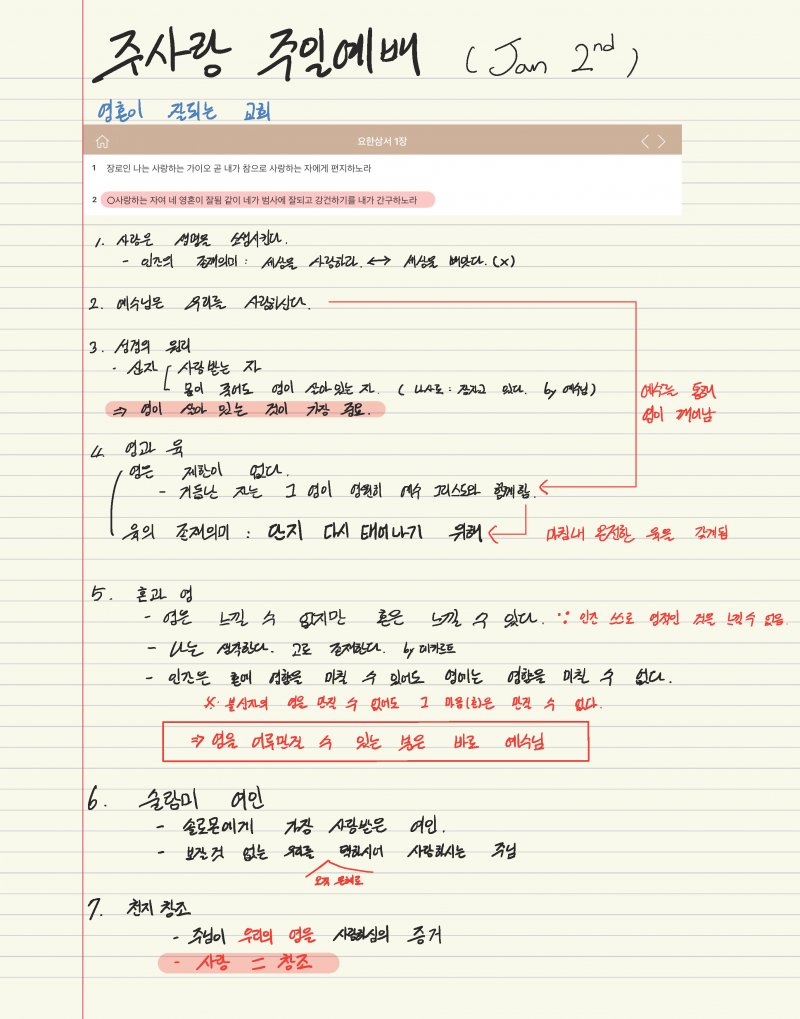 주사랑 주일예배 (Jan 2nd)
영혼이 잘되는 교회
요한삼서 1장
1 장로인 나는 사랑하는 가이오 곧 내가 참으로 사랑하는 자에게 편지하노라
2 ○사랑하는 자여 네 영혼이 잘됨 같이 네가 범사에 잘되고 강건하기를 내가 간구하노라
1. 사랑은 생명을 소생시킨다.
- 인조의 존재의미 : 세상을 사랑하라. ↔ 세상을 뺴앗다. (x)
2. 예수님은 우리를 사랑하신다.
3. 성경의 원리
· 신자 사랑받는 자
몸이 죽어도 영이 살아있는 자. ( 나사로 : 잠자고 있다. by 예수님)
⇒ 영이 살아 있는 것이 가장 중요.
예수를 통해
영이 깨어남
4. 영과 육
영은 제한이 없다.
- 거듭난 자는 그 영이 영원히 예수 그리스도와 함께함.
육의 존재의미 : 단지 다시 태어나기 위해
마침내 온전한 육을 갖게됨
5. 혼과 영
- 영은 느낄 수 없지만 혼은 느낄 수 있다. ∵ 인조 쓰로 영적인 것을 느낄 수 없음.
- 나는 생각한다. 고로 존재한다. by 데카르트
- 인조은 혼에 영향을 미칠 수 있어도 영에는 영향을 미칠 수 없다.
※ 불신자의 영은 만질 수 없어도 그 마음(혼)은 만질 수 있다.
⇒ 영을 어루만질 수 있는 분은 바로 예수님
6. 술람미 여인
- 솔로몬에게 가장 사랑받은 여인.
- 보잘것 없는 우리를 택하시어 사랑하시는 주님
오직 은혜로
7. 천지 창조
- 주님이 우리의 영을 사랑하심의 증거
- 사랑 = 창조